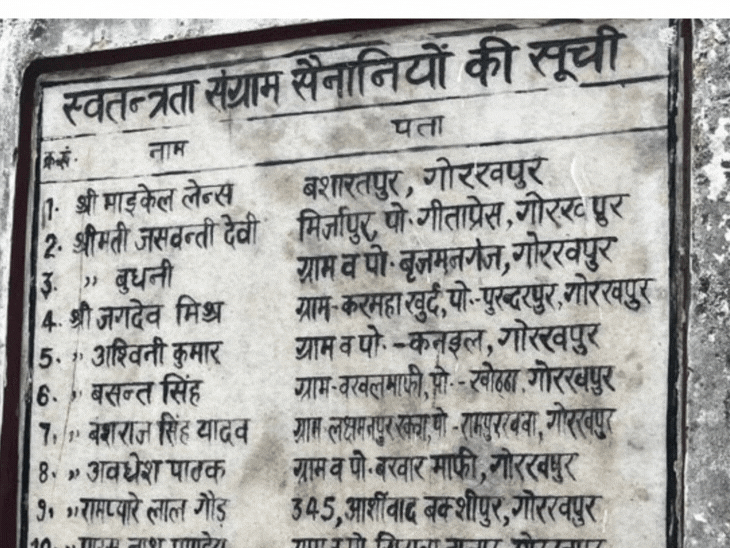 स्वतन्त्रता संग्राम सैनानियों की सूची
क्र०सं. नाम पता
1. श्री माइकेल लेन्स बशारतपुर, गोरखपुर
2. श्रीमती जसवन्ती देवी मिर्जापुर, पो. गीताप्रेस, गोरखपुर
3. ,, बुधनी ग्राम व पो. बृजमनगंज, गोरखपुर
4. श्री जगदेव मिश्र ग्राम-करमहा खुर्द, पो.-पुरन्दरपुर, गोरखपुर
5. ,, अश्विनी कुमार ग्राम व पो. -कनइल, गोरखपुर
6. ,, बसन्त सिंह ग्राम-वरवलमाफी, पो.- गोरखपुर
7. ,, बंशराज सिंह यादव ग्राम-लक्षमनपुर पो-रामपुररवबा, गोरखपुर
8. ,, अवधेश पाठक ग्राम व पो. बरवार माफी, गोरखपुर
9. ,, रामप्यारे लाल गौड़ 345, आर्शीवाद बक्शीपुर, गोरखपुर
10.